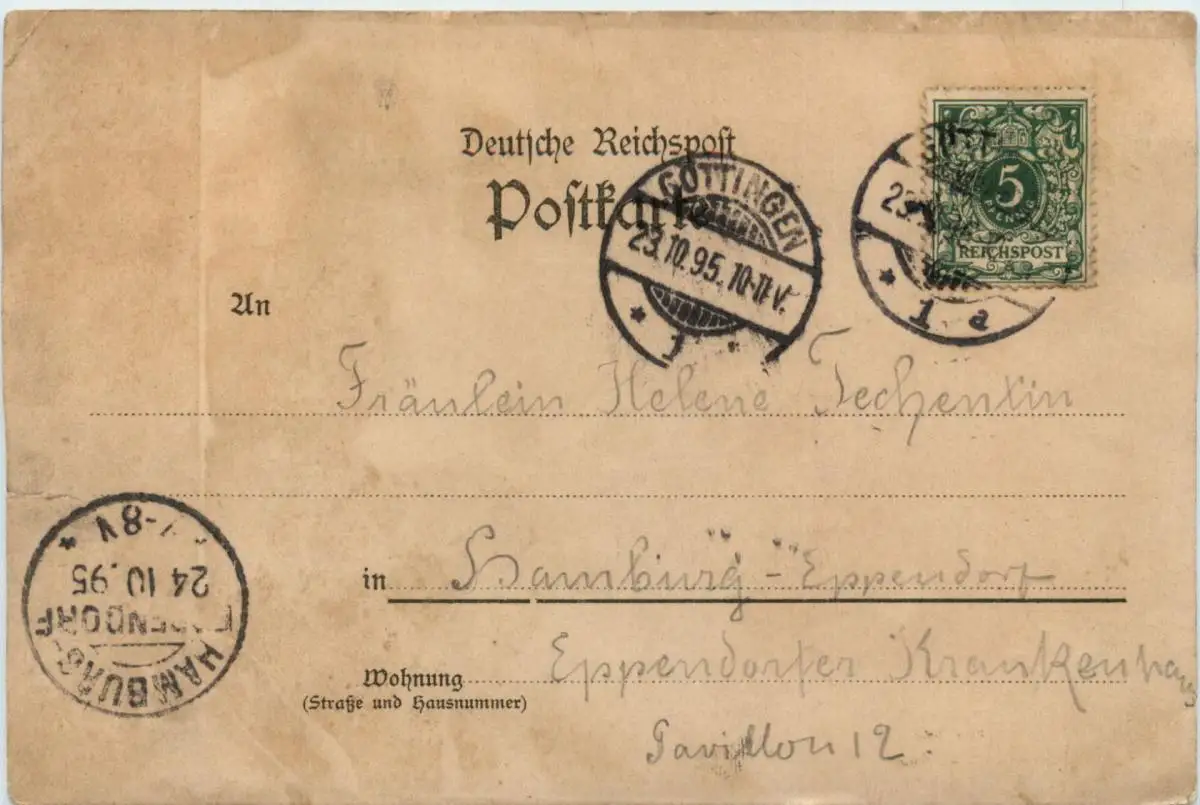 Deutsche Reichspost
Postkarte
GÖTTINGEN
23.10.95. 10-11 V.
GÖTT
23.
1 a
5
PFENNIG
REICHSPOST
An
Fräulein Helene Techentin
in Hamburg-Eppendorf
Wohnung Eppendorfer Krankenhaus
(Straße und Hausnummer)
Pavillon 12.
HAMBURG-
EPPENDORF
24 10.95
7-8V